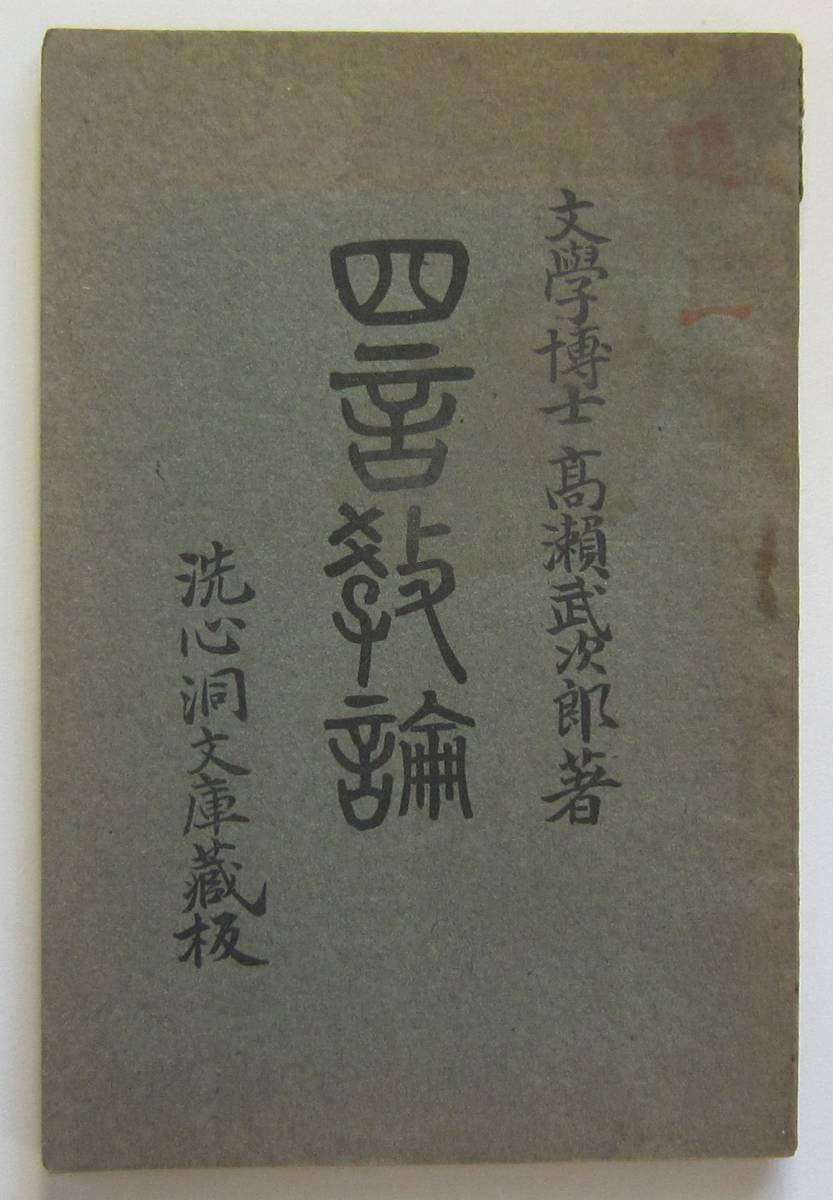 文學博士 高瀨武次郎著
四言教論
洗心洞文庫藏板